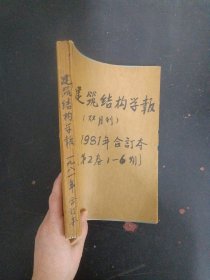 建筑结构学报
(双月刊)
1981年合訂本
第2卷1—6期
建筑结构学报 一九八一年 合訂本